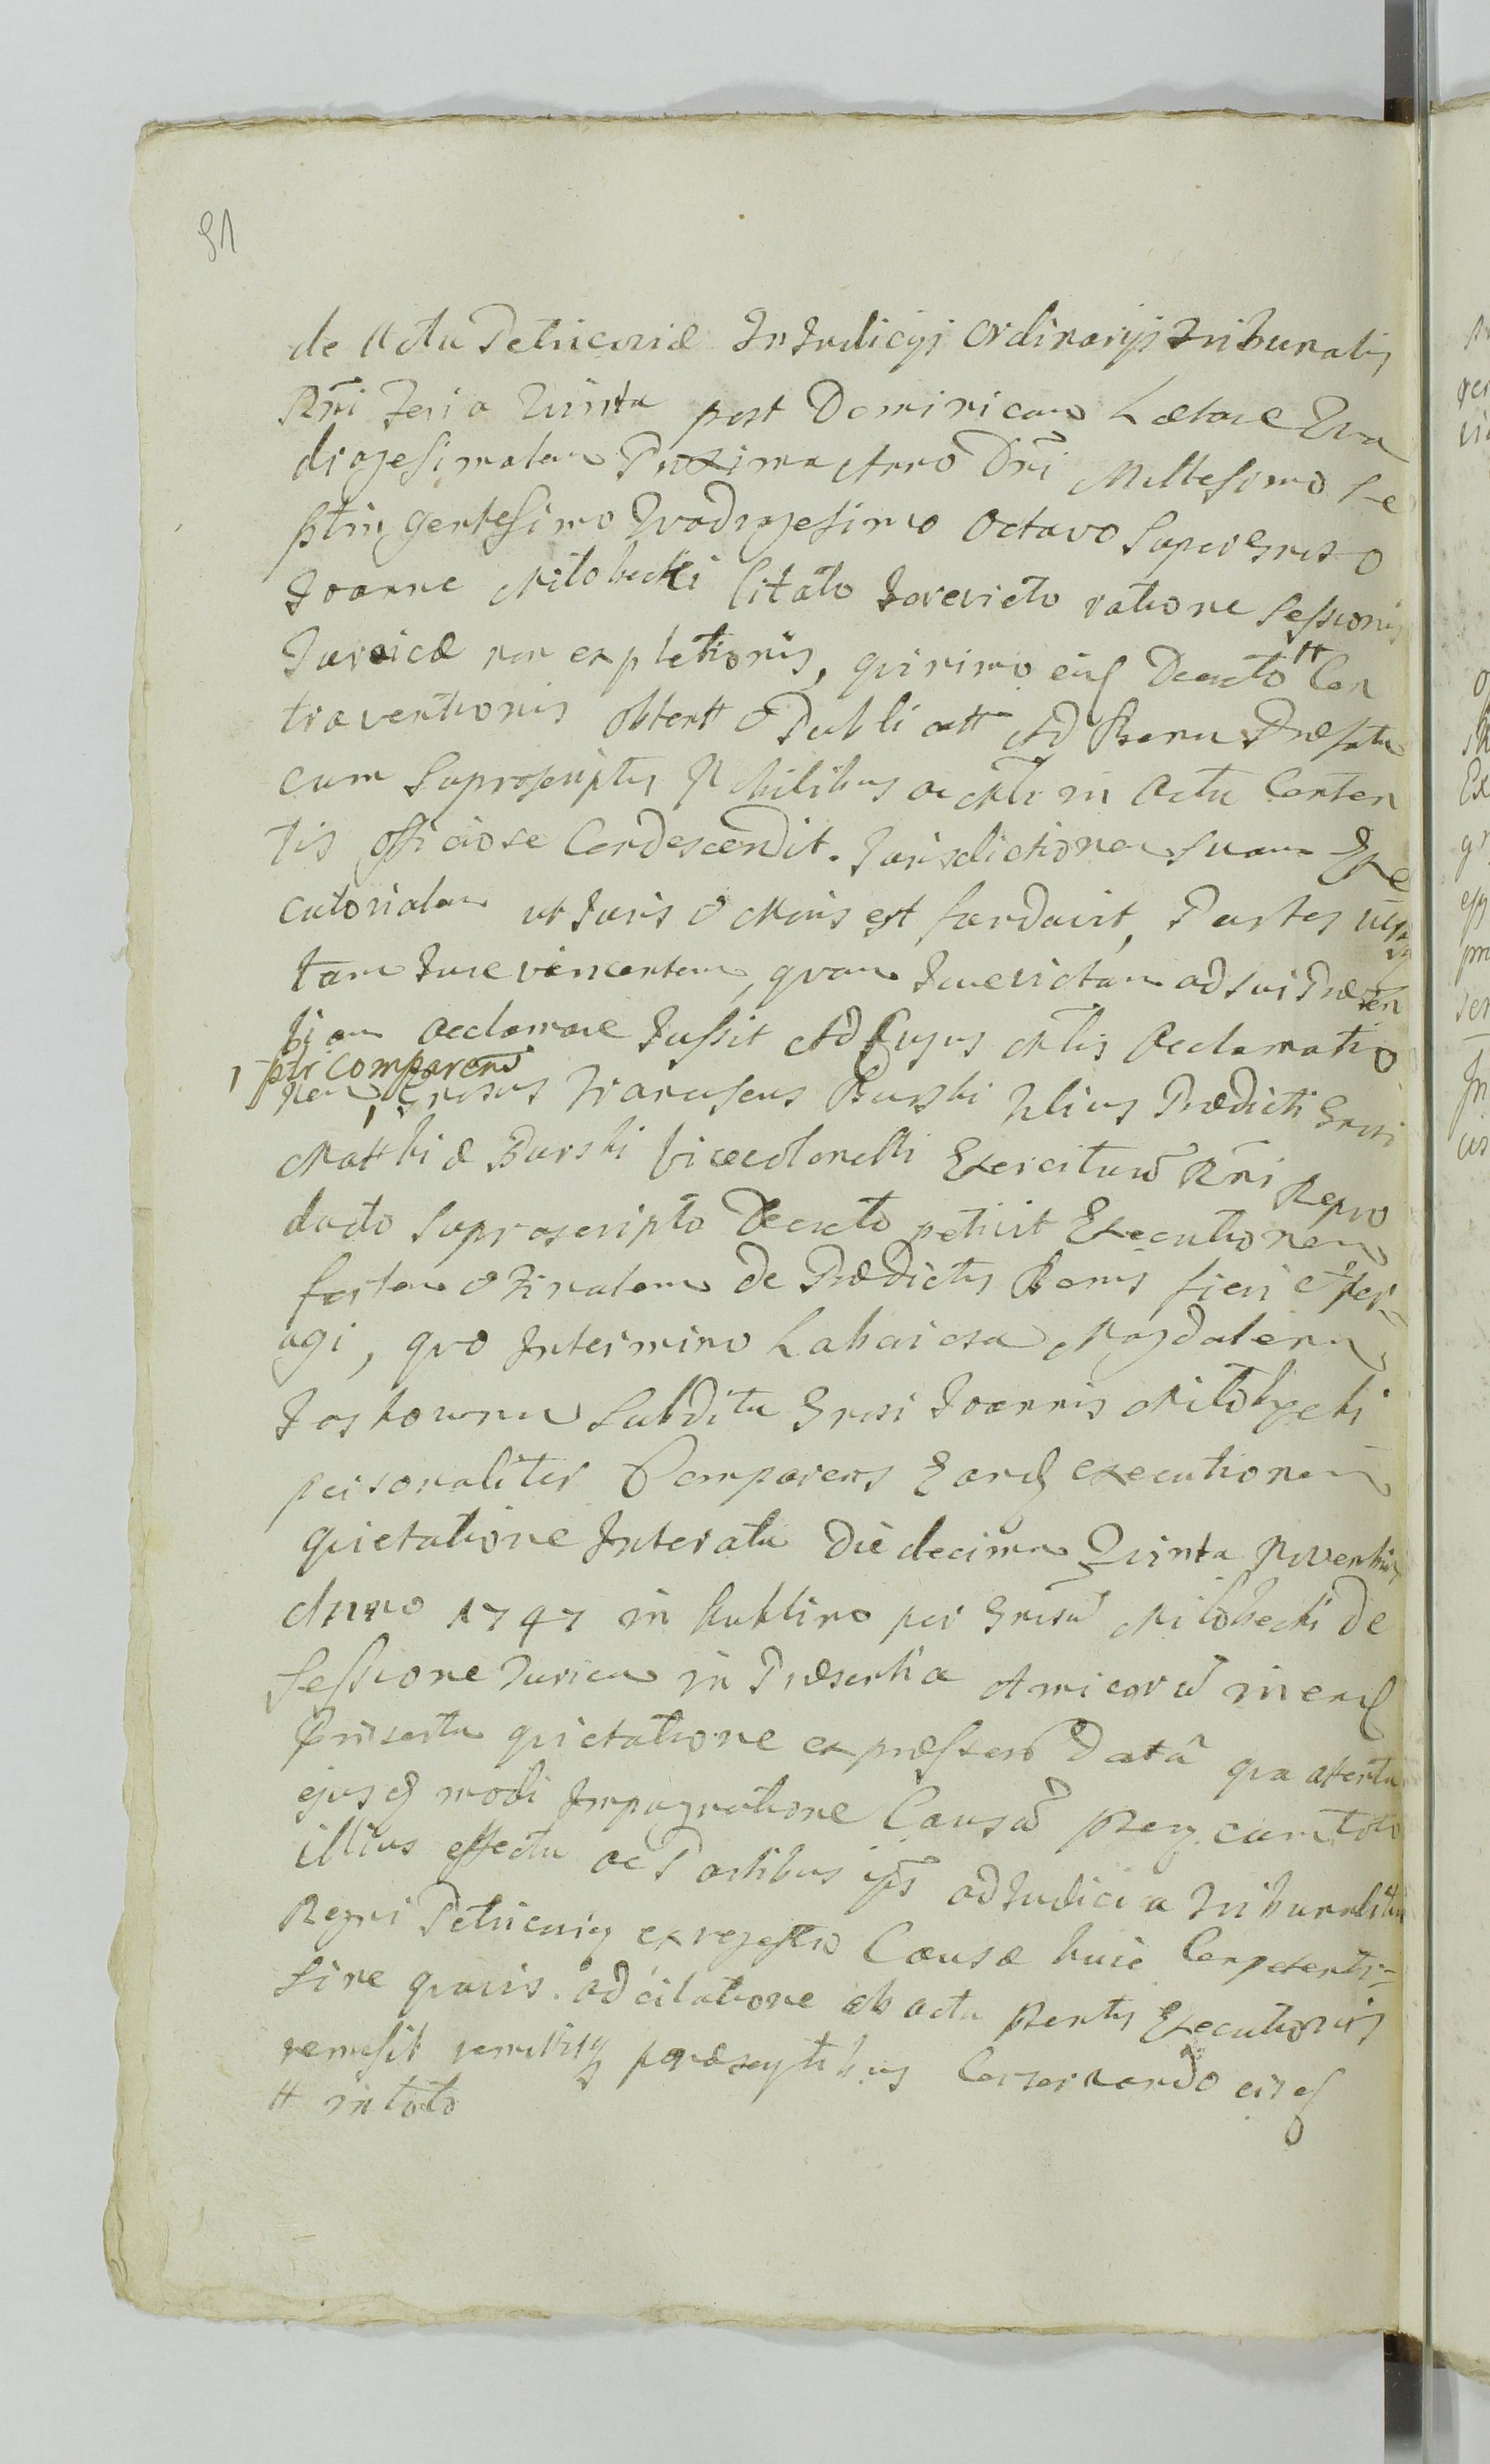 91
de Actu Petricoviæ In Judicijs Ordinarijs Tribunalis
Rñi Feria Quinta post Dominicam Lætare Qua
dragesimalem Proxima Anno Dñi Millesimo Se
ptingentesimo Quadragesimo Octavo Super Gnso
Joanne Miłobęcki Citato Jurevicto ratione Sessionis
Juridicæ non expletionis, quinimo Decreto # Con
traventionis obtent & Publicatt Ad Bona Præfata
cum Suprascriptis Nobilibus ac Mli in Actu Conten
tis officiose Condescendit. Jurisdictionem Suam Exe
cutorialem ut Juris & Moris est fundavit, Partes
tam Jurevincentem, quam Jurevictam ad sui Præsen
tiam acclamare Jussit Ad Cujus Mlis Acclamatio
, ptr comparens
nem, Gnosus Franciscus Burski Filius Prædicti Gnosi
Matthiæ Burski Vicecolonelli Exercituũ Rñi Repro
ducto Suprascripto Decreto petivit Executionem
fortem & Finalem de Prædictis Bonis fieri et per
agi, quo Intermino Laboriosa Magdalena
Joskowna Subdita Gnosi Joannis Miłobęcki
personaliter Comparens Eand executionem
quietatione Interata Die decima Quinta Novembris
Anno 1747 in Lublino per Gnosũ Miłobęcki de
Sessione Jurica in Præsentia Amicorũ in ead
Inserta quietatione expressorũ Datâ qua attenta
ejusq modi Impugnatione Causã pñem cum toto
illius effectu ac Partibus ipĩs ad Judicia Tribunalitia
Regni Petricoviæ ex regestro Causæ huic Competenti
sine quavis adcitatione ab actu pñtis Executionis
remisit remittitq præsentibus Conservando eisd
# in toto